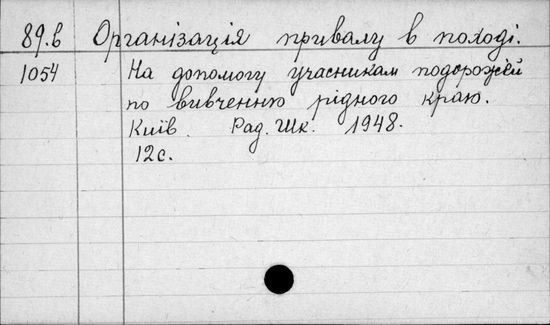 89.в Організація привалу в поході.
1054 На допомогу учасникам подорожей
по вивченню рідного краю.
Київ. Рад. Шк. 1948.
12с.